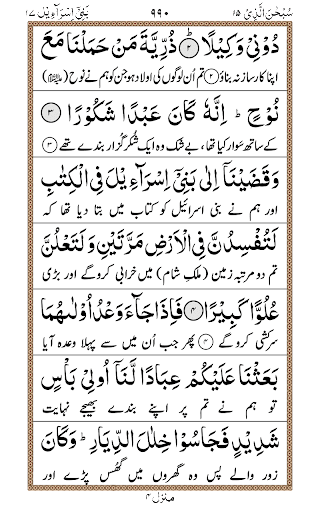 سُبْحٰنَ الَّذِیْۤ ۱۵ ۹۹۰ بَنِیْۤ اِسْرَآءِیْل ۱۷
دُوْنِیْ وَكِیْلًا ۟﴿۲﴾ ذُرِّیَّةَ مَنْ حَمَلْنَا مَعَ
اپنا کارساز نہ بناؤ ﴿۲﴾ تم اُن لوگوں کی اولاد ہو جن کو ہم نے نوح (ﷺ)
نُوْحٍ ؕ اِنَّهٗ كَانَ عَبْدًا شَكُوْرًا ﴿۳﴾
کے ساتھ سَوار کیا تھا، بے شک وہ ایک شکر گزار بندے تھے ﴿۳﴾
وَقَضَیْنَاۤ اِلٰی بَنِیْۤ اِسْرَآءِیْلَ فِی الْكِتٰبِ
اور ہم نے بنی اسرائیل کو کتاب میں بتا دیا تھا کہ
لَتُفْسِدُنَّ فِی الْاَرْضِ مَرَّتَیْنِ وَلَتَعْلُنَّ
تم دو مرتبہ زمین (ملکِ شام) میں خرابی کرو گے اور بڑی
عُلُوًّا كَبِیْرًا ﴿۴﴾ فَاِذَا جَآءَ وَعْدُ اُوْلٰىهُمَا
سرکشی کرو گے ﴿۴﴾ پھر جب اُن میں سے پہلا وعدہ آیا
بَعَثْنَا عَلَیْكُمْ عِبَادًا لَّنَاۤ اُولِیْ بَاْسٍ
تو ہم نے تم پر اپنے بندے بھیجے نہایت
شَدِیْدٍ فَجَاسُوْا خِلٰلَ الدِّیَارِ ؕ وَكَانَ
زور والے پس وہ گھروں میں گُھس پڑے اور
منزل ۴